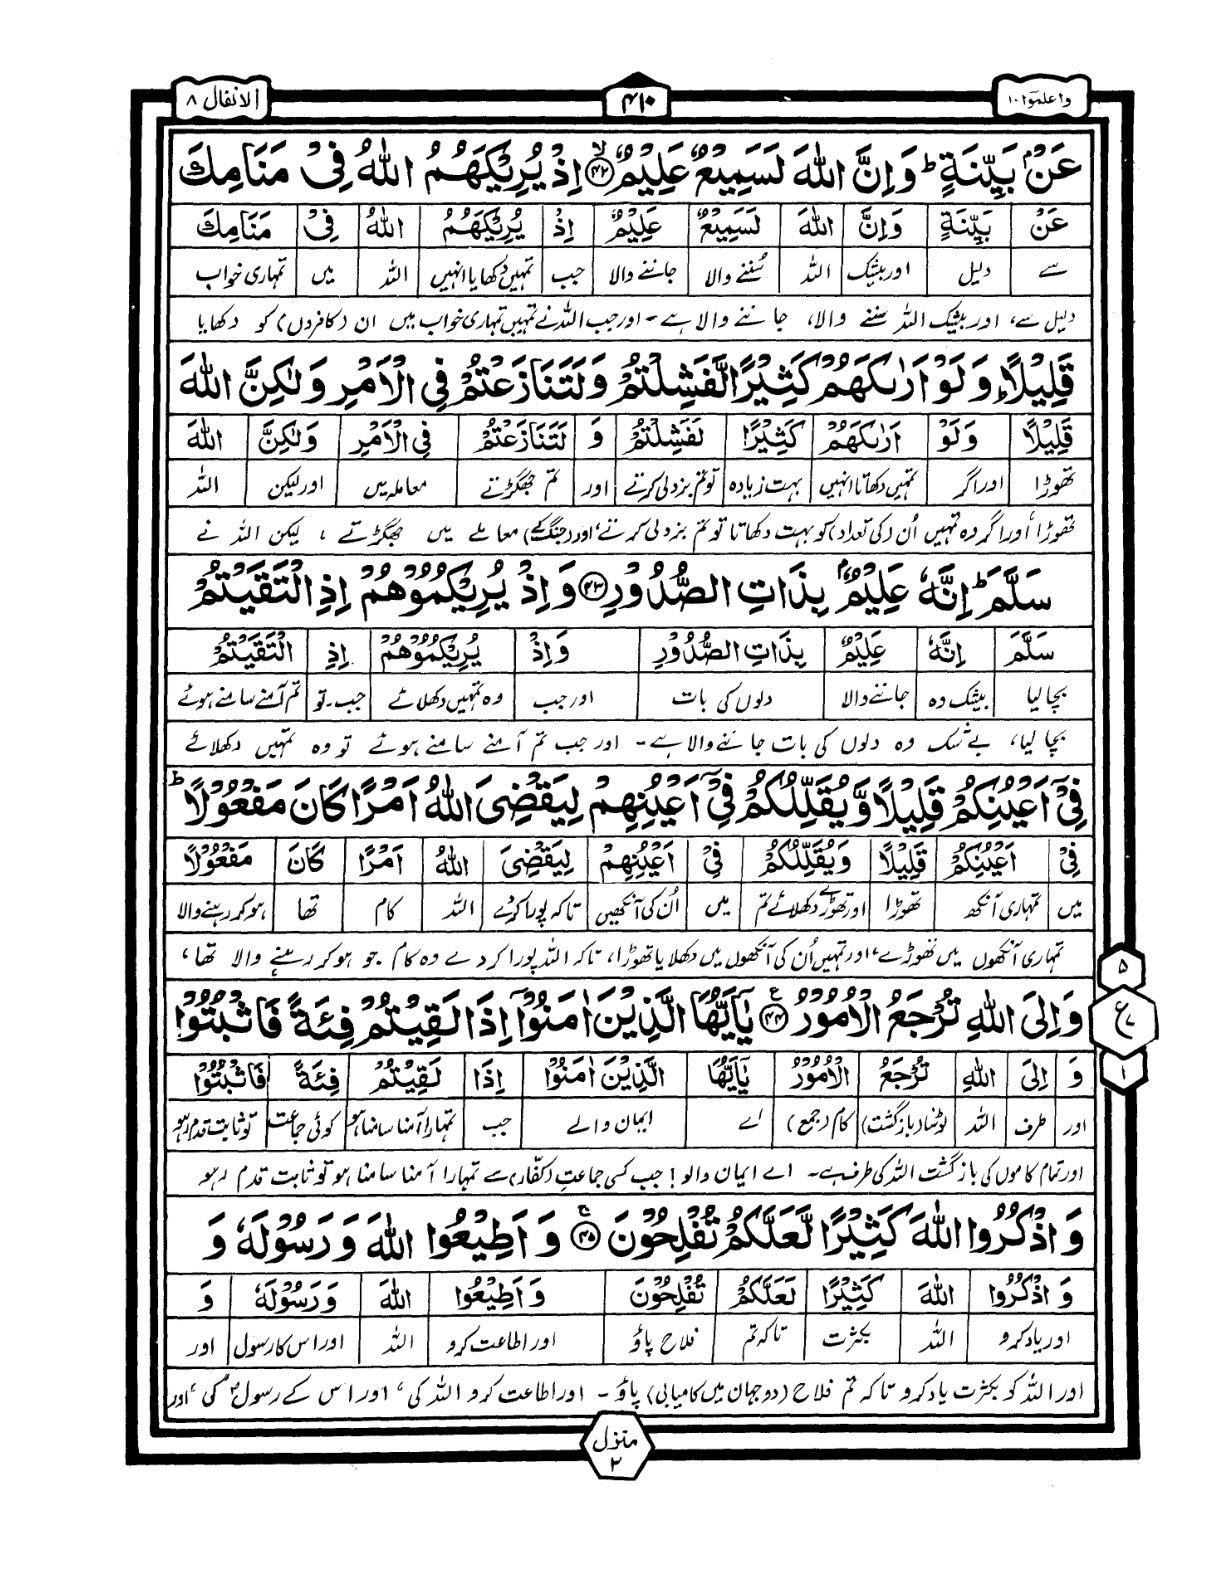 واعلموا ۱۰
۴۱۰
الانفال ۸
عَنْۢ بَيِّنَةٍ ؕ وَاِنَّ اللّٰهَ لَسَمِيْعٌ عَلِيْمٌ ۙ﴿۴۲﴾ اِذْ يُرِيْكَهُمُ اللّٰهُ فِيْ مَنَامِكَ
عَنْ بَيِّنَةٍ وَاِنَّ اللّٰهَ لَسَمِيْعٌ عَلِيْمٌ اِذْ يُرِيْكَهُمُ اللّٰهُ فِيْ مَنَامِكَ
سے دلیل اور بیشک اللہ سننے والا جاننے والا جب تمہیں دکھایا انہیں اللہ میں تمہاری خواب
دلیل سے، اور بیشک اللہ سننے والا، جاننے والا ہے - اور جب اللہ نے تمہیں تمہاری خواب میں ان (کافروں) کو دکھایا
قَلِيْلًا ؕ وَلَوْ اَرٰىكَهُمْ كَثِيْرًا لَّفَشِلْتُمْ وَلَتَنَازَعْتُمْ فِي الْاَمْرِ وَلٰكِنَّ اللّٰهَ
قَلِيْلًا وَلَوْ اَرٰىكَهُمْ كَثِيْرًا لَفَشِلْتُمْ وَ لَتَنَازَعْتُمْ فِي الْاَمْرِ وَلٰكِنَّ اللّٰهَ
تھوڑا اور اگر تمہیں دکھاتا انہیں بہت زیادہ تو تم بزدلی کرتے اور تم جھگڑتے معاملہ میں اور لیکن اللہ
تھوڑا اور اگر وہ تمہیں اُن (کی تعداد) کو بہت دکھاتا تو تم بزدلی کرتے، اور (جنگ کے) معاملے میں جھگڑتے، لیکن اللہ نے
سَلَّمَ ؕ اِنَّهٗ عَلِيْمٌۢ بِذَاتِ الصُّدُوْرِ ﴿۴۳﴾ وَاِذْ يُرِيْكُمُوْهُمْ اِذِ الْتَقَيْتُمْ
سَلَّمَ اِنَّهٗ عَلِيْمٌ بِذَاتِ الصُّدُوْرِ وَاِذْ يُرِيْكُمُوْهُمْ اِذِ الْتَقَيْتُمْ
بچا لیا بیشک وہ جاننے والا دلوں کی بات اور جب وہ تمہیں دکھلائے جب۔ تو تم آمنے سامنے ہوئے
بچا لیا، بے شک وہ دلوں کی بات جاننے والا ہے - اور جب تم آمنے سامنے ہوئے تو وہ تمہیں دکھلائے
فِيْۤ اَعْيُنِكُمْ قَلِيْلًا وَّيُقَلِّلُكُمْ فِيْۤ اَعْيُنِهِمْ لِيَقْضِيَ اللّٰهُ اَمْرًا كَانَ مَفْعُوْلًا ؕ
فِيْ اَعْيُنِكُمْ قَلِيْلًا وَيُقَلِّلُكُمْ فِيْ اَعْيُنِهِمْ لِيَقْضِيَ اللّٰهُ اَمْرًا كَانَ مَفْعُوْلًا
میں تمہاری آنکھ تھوڑا اور تھوڑے دکھلائے تم میں اُن کی آنکھیں تاکہ پورا کردے اللہ کام تھا ہو کر رہنے والا
تمہاری آنکھوں میں تھوڑے، اور تمہیں اُن کی آنکھوں میں دکھلایا تھوڑا، تاکہ اللہ پورا کر دے وہ کام جو ہو کر رہنے والا تھا،
وَاِلَى اللّٰهِ تُرْجَعُ الْاُمُوْرُ ﴿۴۴﴾ ع يٰۤاَيُّهَا الَّذِيْنَ اٰمَنُوْۤا اِذَا لَقِيْتُمْ فِئَةً فَاثْبُتُوْا
۵ ع ۷ ۱
وَ اِلَى اللّٰهِ تُرْجَعُ الْاُمُوْرُ يٰۤاَيُّهَا الَّذِيْنَ اٰمَنُوْا اِذَا لَقِيْتُمْ فِئَةً فَاثْبُتُوْا
اور طرف اللہ لوٹنا (بازگشت) کام (جمع) اے ایمان والے جب تمہارا آمنا سامنا ہو کوئی جماعت تو ثابت قدم رہو
اور تمام کاموں کی بازگشت اللہ کی طرف ہے - اے ایمان والو! جب کسی جماعت (کفار) سے تمہارا آمنا سامنا ہو تو ثابت قدم رہو
وَاذْكُرُوا اللّٰهَ كَثِيْرًا لَّعَلَّكُمْ تُفْلِحُوْنَ ۚ﴿۴۵﴾ وَاَطِيْعُوا اللّٰهَ وَرَسُوْلَهٗ وَ
وَاذْكُرُوا اللّٰهَ كَثِيْرًا لَعَلَّكُمْ تُفْلِحُوْنَ وَاَطِيْعُوا اللّٰهَ وَرَسُوْلَهٗ وَ
اور یاد کرو اللہ بکثرت تاکہ تم فلاح پاؤ اور اطاعت کرو اللہ اور اس کا رسول اور
اور اللہ کو بکثرت یاد کرو تاکہ تم فلاح (دو جہان میں کامیابی) پاؤ - اور اطاعت کرو اللہ کی، اور اس کے رسولؐ کی، اور
منزل ۲